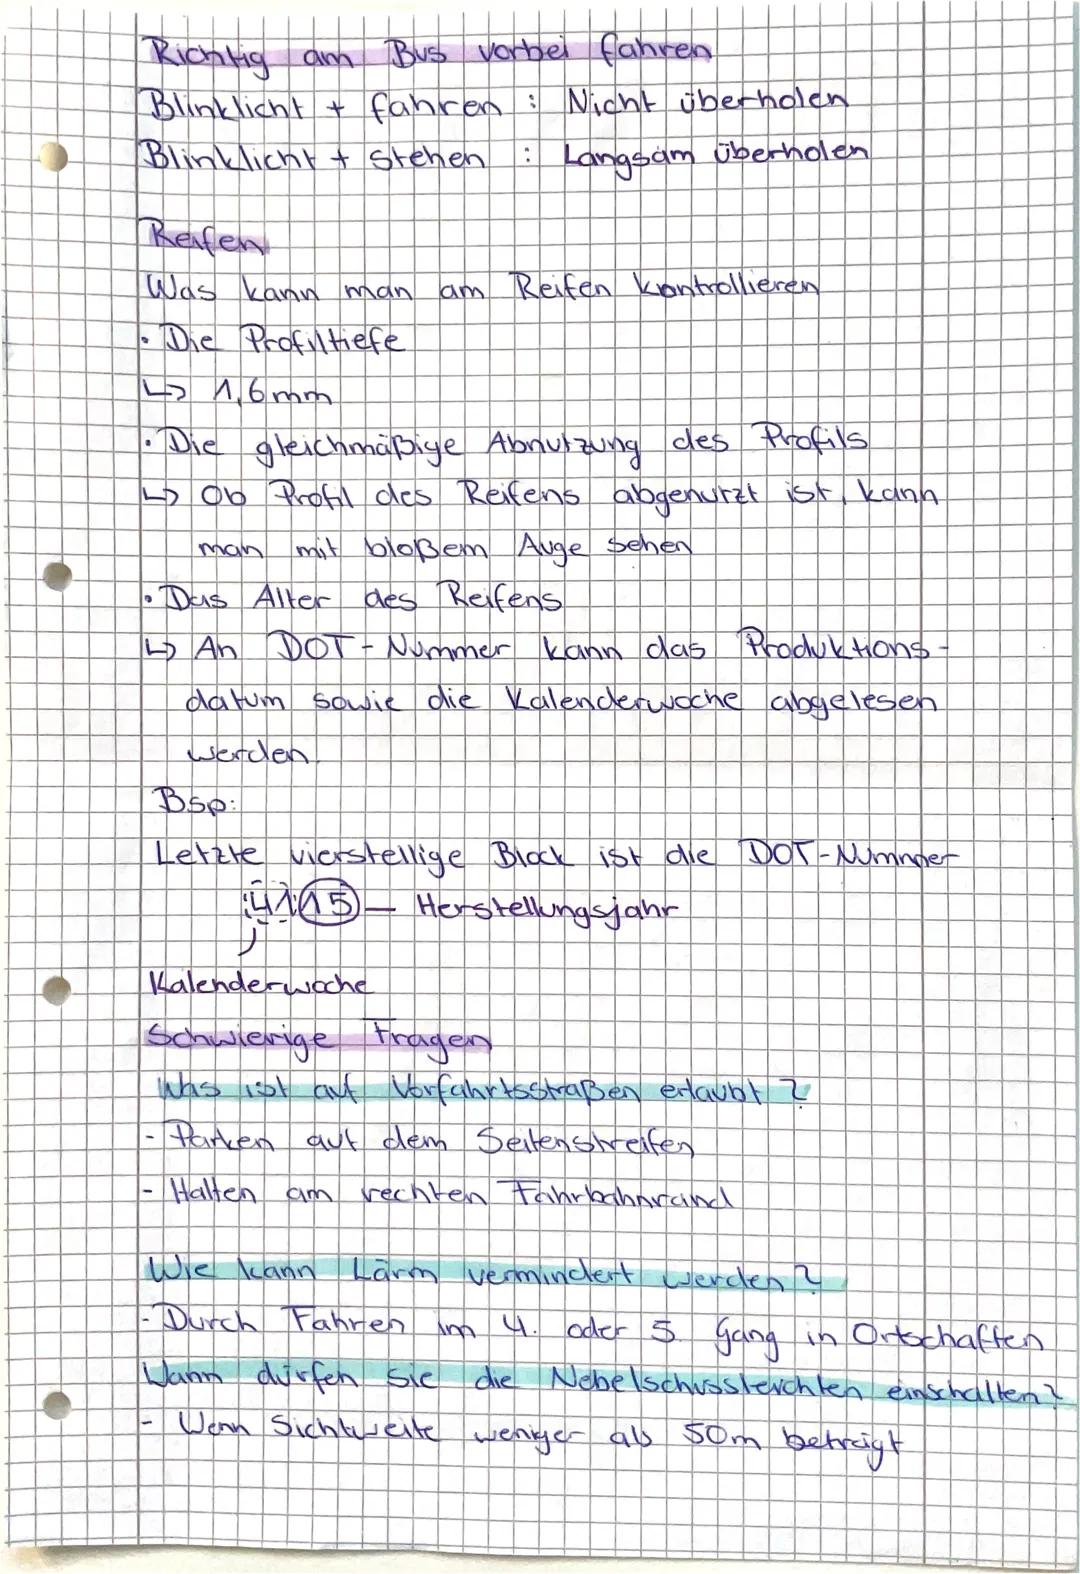 Richtig am Bus vorbei fahren
Blinklicht + fahren : Nicht überholen
Blinklicht + stehen : Langsam überholen
Reifen
Was kann man am Reifen kontrollieren
• Die Profiltiefe
↳ 1,6 mm
• Die gleichmäßige Abnutzung des Profils
↳ Ob Profil des Reifens abgenutzt ist, kann
man mit bloßem Auge sehen
• Das Alter des Reifens
↳ An DOT-Nummer kann das Produktions-
datum sowie die Kalenderwoche abgelesen
werden.
Bsp:
Letzte vierstellige Block ist die DOT-Nummer
4115 — Herstellungsjahr
Kalenderwoche
Schwierige Fragen
Was ist auf Vorfahrtsstraßen erlaubt ?
- Parken auf dem Seitenstreifen
- Halten am rechten Fahrbahnrand
Wie kann Lärm vermindert werden ?
- Durch Fahren im 4. oder 5. Gang in Ortschaften
Wann dürfen Sie die Nebelschussleuchten einschalten?
- Wenn Sichtweite weniger als 50m beträgt